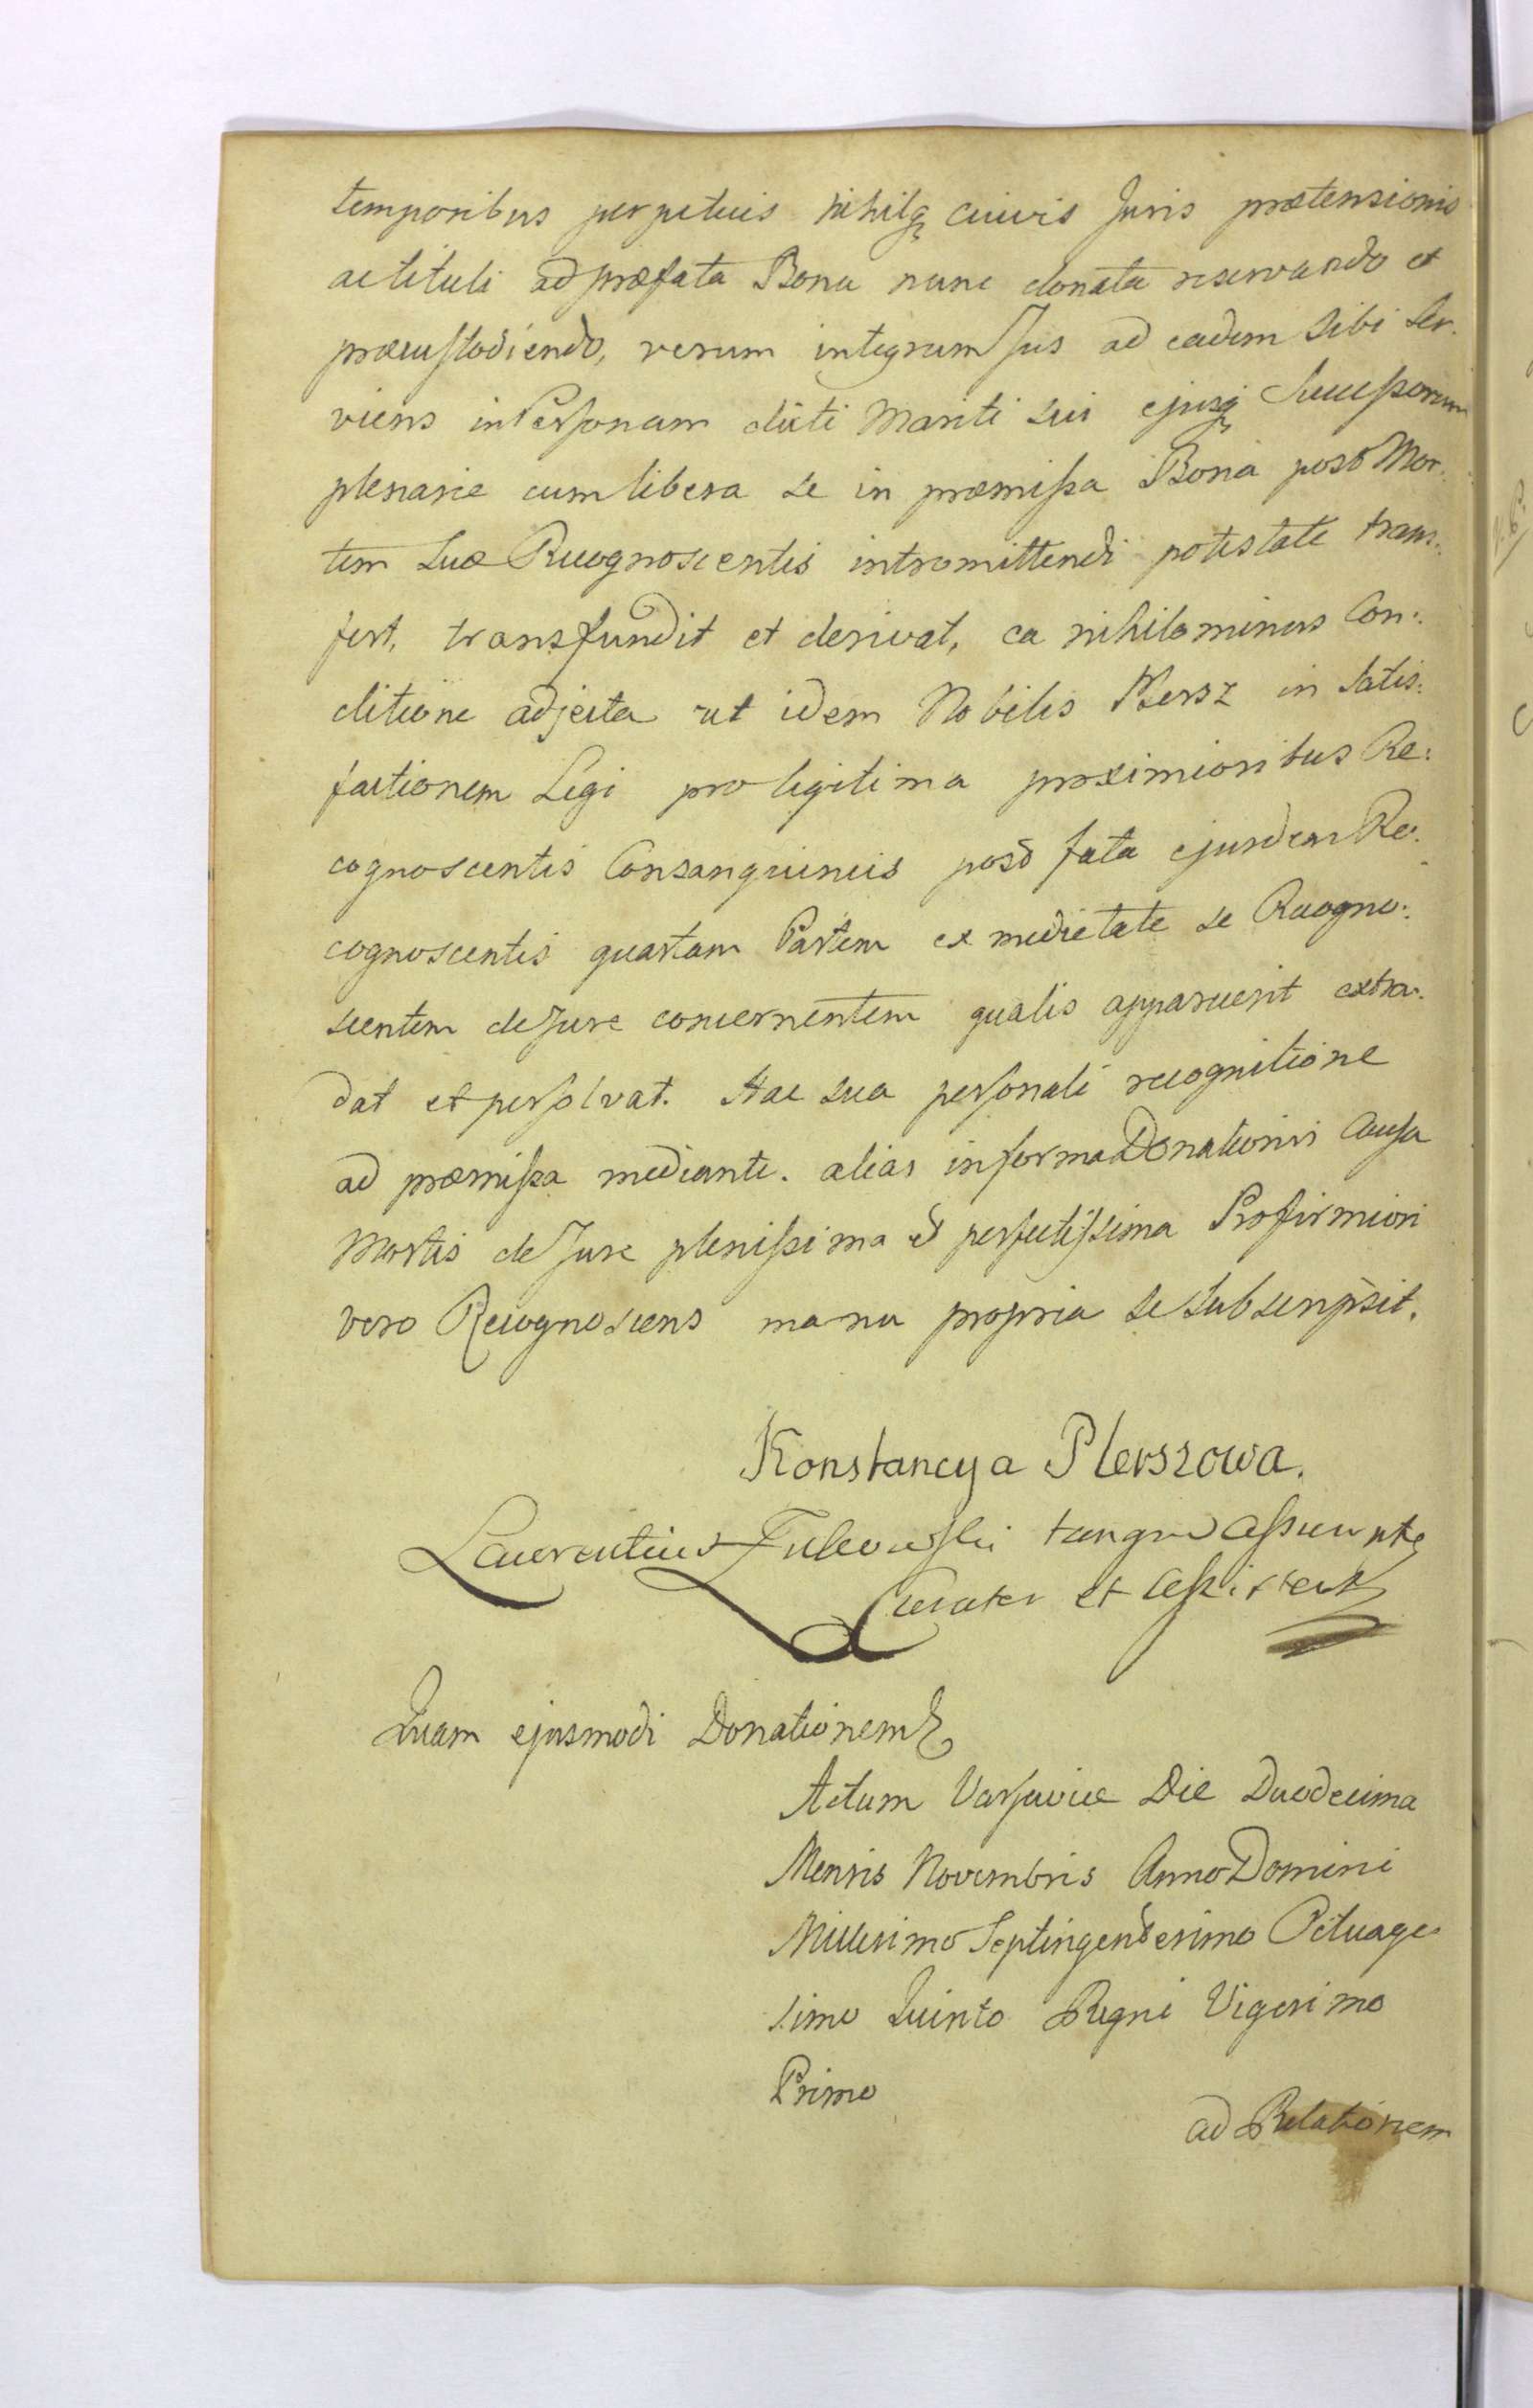 temporibus perpetuis nihilq cuivis Juris prætensionis
ac tituli ad præfata Bona nunc donata reservando et
præcustodiendo, verum integrum Jus ad eadem sibi ser:
viens in Personam dicti Mariti sui ejusq Successorum
plenarie cum libera se in præmissa Bona post Mor:
tem suæ Recognoscentis intromittendi potestate trans:
fert, transfundit et derivat, ea nihilominus Con:
ditione adjecta ut idem Nobilis Plersz in satis:
factionem Legi pro legitima proximioribus Re:
cognoscentis Consanguineis post fata ejusdem Re:
cognoscentis quartam Partem ex medietate se Recogno:
scentem de Jure concernentem qualis apparuerit extra:
dat et persolvat. Hac sua personali recognitione
ad præmissa mediante. alias in forma Donationis Causa
Mortis de Jure plenissima et perfectissima Pro firmiori
vero Recognoscens manu propria se subscripsit.
Konstancya Plerszowa.
Laurentius tanqm assumpt
Curator et assistens
Quam ejusmodi Donationem
Actum Varsaviæ Die Duodecima
Mensis Novembris Anno Domini
Millesimo Septingentesimo Octuage
simo Quinto Regni Vigesimo
Primo
ad Relationem